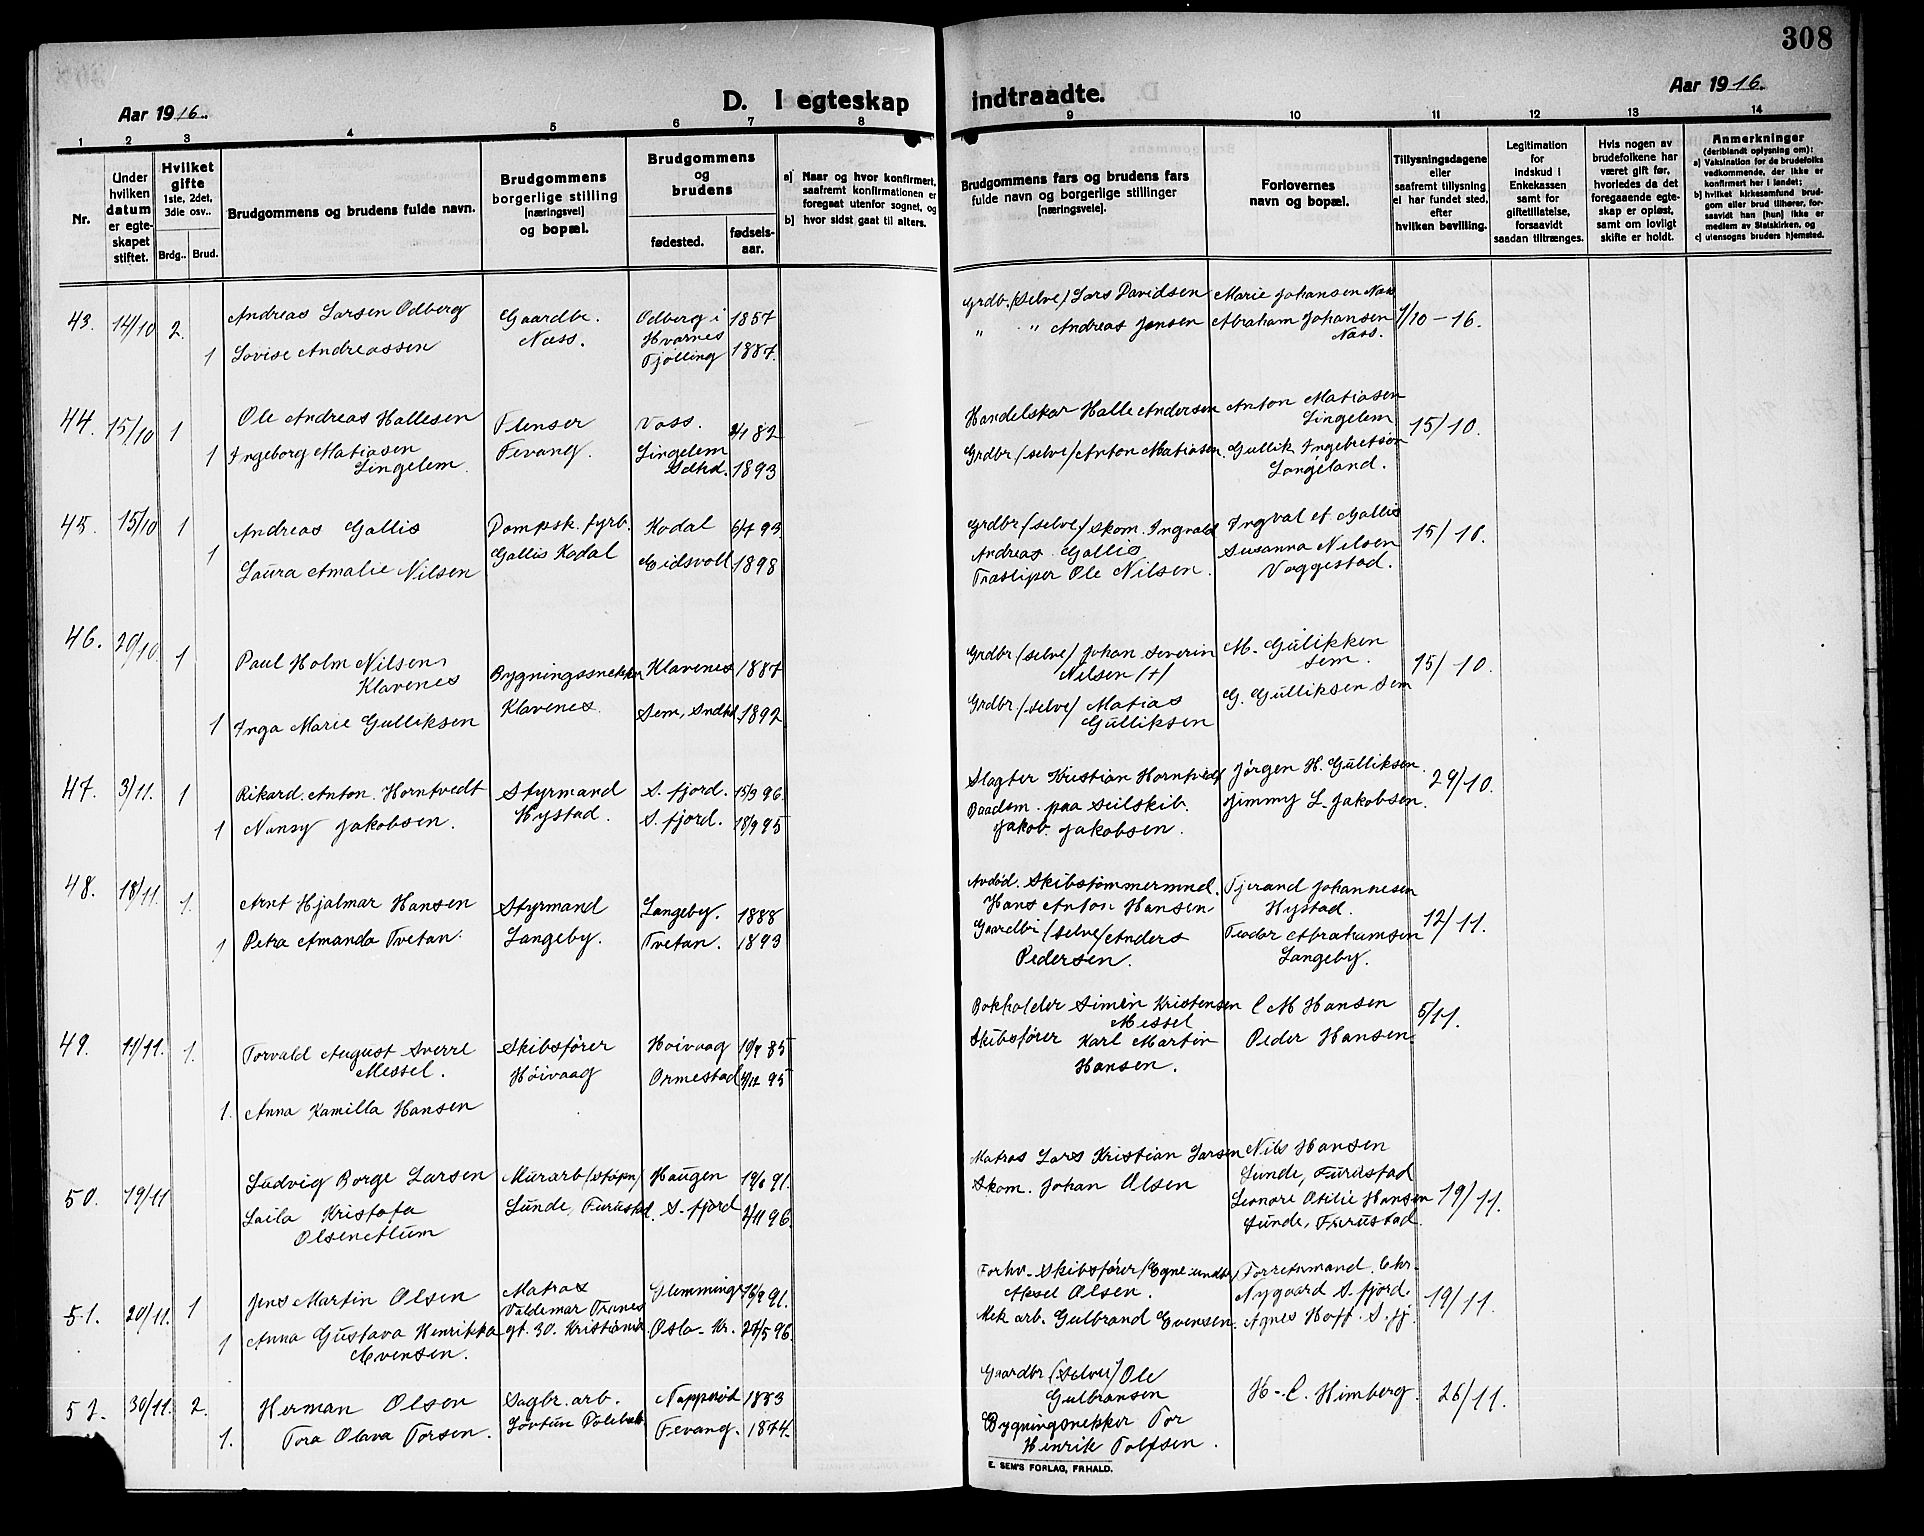 308
Aar 1916.
D. I egteskap indtraadte.
Aar 1916.
1 2 3 4 5 6 7 8 9 10 11 12 13 14
Nr.
Under hvilken datum er egteskapet stiftet.
Hvilket gifte 1ste, 2det, 3die osv..
Brdg.. Brud.
Brudgommens og brudens fulde navn.
Brudgommens borgerlige stilling [næringsvei] og bopæl.
Brudgommens og brudens
fødested.
fødsels-aar.
a) Naar og hvor konfirmert, saafremt konfirmationen er foregaat utenfor sognet, og
b) hvor sidst gaat til alters.
Brudgommens fars og brudens fars fulde navn og borgerlige stillinger [næringsveie].
Forlovernes navn og bopæl.
Tillysningsdagene eller saafremt tillysning ei har fundet sted, efter hvilken bevilling.
Legitimation for indskud i Enkekassen samt for giftetillatelse, forsaavidt saadan tiltrænges.
Hvis nogen av brudefolkene har været gift før, hvorledes da det foregaaende egteskap er opløst, samt om lovligt skifte er holdt.
Anmerkninger (deriblandt oplysning om): a) Vaksination for de brudefolks vedkommende, der ikke er konfirmert her i landet; b) hvilket kirkesamfund brudgom eller brud tilhører, forsaavidt han [hun] ikke er medlem av Statskirken, og c) utensogns bruders hjemsted.
43. 14/10 2. Andreas Larsen Odberg Gaardbr. Odberg i 1857 Grdb. (selve) Lars Davidsen Marie Johansen Næss
Næss. Hvarnes " " Andreas Jensen Abraham Johansen 1/10 - 16.
1 Lovise Andreassen Tjølling 1887. Næss.
44. 15/10 1 Ole Andreas Hallesen Flenser Voss. 2/1 82 Handelskar Halle Andersen Anton Matiasen
Lingelem 15/10.
1 Ingeborg Matiasen Fevang. Lingelem Grdbr (selve) Anton Matiasen. Gullik Ingebretsen
Lingelem. Sdhd. 1893 Langeland.
45. 15/10 1 Andreas Gallis Dampsk. fyrb. Kodal 6/7 93 Grdbr (selve) skom. Ingvald Ingval ef Gallis
Gallis Kodal Andreas Gallis Susanna Nilsen 15/10.
1 Laura Amalie Nilsen Eidsvoll 1898 Træsliper Ole Nilsen. Vaggestad.
46. 29/10. 1 Paul Holm Nilsen Bygningssnekker Klavenes 1887 Grdbr (selve) Johan Severin M. Gulikken
Klavenes Klavenes. Nilsen (+) Sem. 15/10.
1 Inga Marie Gulliksen Sem, Sndhd. 1892 Grdbr (selve) Matias G. Gulliksen Sem
Gulliksen
47. 3/11. 1 Rikard. Anton. Horntvedt Styrmand S. fjord. 15/3 96. Slagter Kristian Horntvedt Jørgen H. Gulliksen. 29/10.
Hystad. Baadsm. paa seilskib. Jimmy L. Jakobsen.
1 Nansy Jakobsen. S. fjord. 18/9 95 Jakob Jakobsen.
48. 18/11. 1. Arnt Hjalmar Hansen Styrmand Langeby. 1888 Avdød. Skibstømmermnd. Tjerand Johannesen
Hans Anton Hansen Hystad. 12/11.
1 Petra Amanda Tvetan. Langeby. Tvetan. 1893 Gaardbr (selve) Anders Teodor Abrahamsen
Pedersen. Langeby.
49. 11/11. 1. Torvald August Sverre Skibsfører Høivaag 19/7 85 Bokholder Simen Kristensen C M Hansen 5/11.
Messel. Høivaag Messel
1. Anna Kamilla Hansen Ormestad 4/12 95 Skibsfører Karl Martin Peder Hansen.
Hansen.
50. 19/11 Ludvig Borge Larsen Murarb (støpn) Haugen 19/6 91. Matros Lars Kristian Larsen Nils Hansen
Lunde, Furustad. Lunde, Furustad
Laila Kristofa S. fjord 2/11 96. Skom. Johan Olsen Leonore Otilie Hansen 19/11.
Olsen Lunde, Furustad.
51. 20/11. 1 Jens Martin Olsen Matros Glemminge 16/9 91. Forhv. Skibsfører Torretsmand. Chr.
Valdemar Tranes Aksel Olsen. Nygaard S. fjord. 19/11.
1 Anna Gustava Henrikka gt. 30. Kristiania Oslo - Kr. 29/5 96. Mek arb. Gulbrand Evensen. Agnes Hoff S. fj.
Evensen.
52. 30/11. 2. Herman Olsen Sagbr. arb. Napperød 1883 Gaardbr (selvei) Ole
Gulbransen H. C. Himberg. 26/11.
1. Tora Olava Torsen. Fevang. 1874. Bygningsnekker Tor
Henrik Tolfsen.
E. SEM'S FORLAG, FR.HALD.